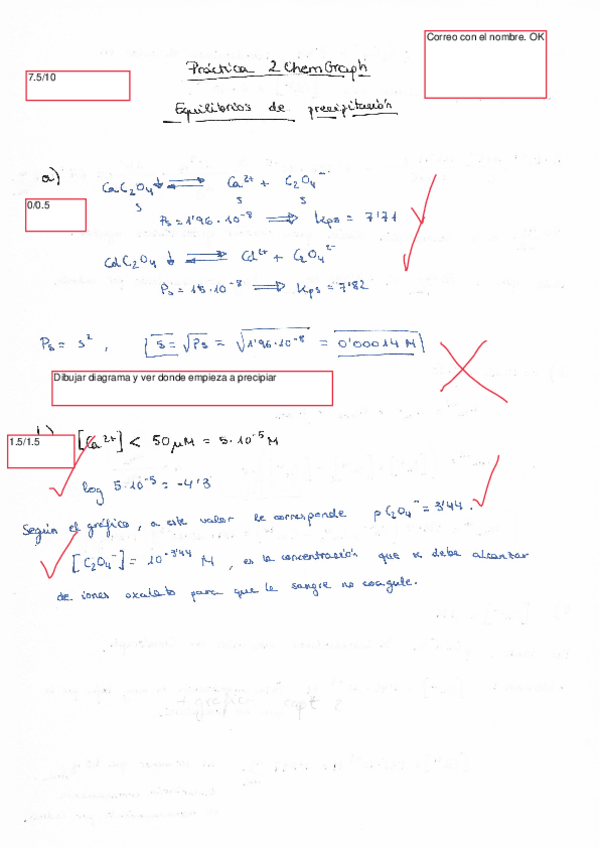 Correo con el nombre. OK
7.5/10
Práctica 2 ChemGraph
Equilibrios de precipitación
a)
CaC₂O₄↓ ⇌ Ca²⁺ + C₂O₄⁻
s s s
0/0.5
Ps = 1'96·10⁻⁸ ⟹ kps = 7'71
CdC₂O₄↓ ⇌ Cd²⁺ + C₂O₄²⁻
Ps = 1'5·10⁻⁸ ⟹ kps = 7'82
Ps = s², s = √Ps = √1'96·10⁻⁸ = 0'00014 M
Dibujar diagrama y ver donde empieza a precipiar
1.5/1.5
[Ca²⁺] < 50 µM = 5·10⁻⁵ M
log 5·10⁻⁵ = -4'3
Según el gráfico, a este valor le corresponde pC₂O₄⁻ = 3'44.
[C₂O₄⁻] = 10⁻³'⁴⁴ M, es la concentración que se debe alcanzar
de iones oxalato para que la sangre no coagule.